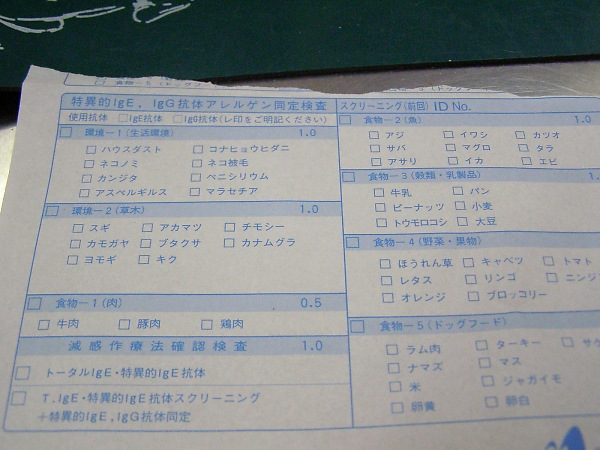 特異的IgE，IgG抗体アレルゲン同定検査
使用抗体 □IgE抗体 □IgG抗体(レ印をご明記ください)
□ 環境ー1(生活環境) 1.0
□ ハウスダスト □ コナヒョウヒダニ
□ ネコノミ □ ネコ被毛
□ カンジタ □ ペニシリウム
□ アスペルギルス □ マラセチア
□ 環境ー2(草木) 1.0
□ スギ □ アカマツ □ チモシー
□ カモガヤ □ ブタクサ □ カナムグラ
□ ヨモギ □ キク
□ 食物ー1(肉) 0.5
□ 牛肉 □ 豚肉 □ 鶏肉
減感作療法確認検査 1.0
□ トータルIgE・特異的IgE抗体
□ T.IgE・特異的IgE抗体スクリーニング
＋特異的IgE,IgG抗体同定
スクリーニング(前回) ID No.
□ 食物ー2(魚) 1.0
□ アジ □ イワシ □ カツオ
□ サバ □ マグロ □ タラ
□ アサリ □ イカ □ エビ
□ 食物ー3(穀類・乳製品) 1.
□ 牛乳 □ パン
□ ピーナッツ □ 小麦
□ トウモロコシ □ 大豆
□ 食物ー4(野菜・果物)
□ ほうれん草 □ キャベツ □ トマト
□ レタス □ リンゴ □ ニンジ
□ オレンジ □ ブロッコリー
□ 食物ー5(ドッグフード)
□ ラム肉 □ ターキー □ サケ
□ ナマズ □ マス
□ 米 □ ジャガイモ
□ 卵黄 □ 卵白